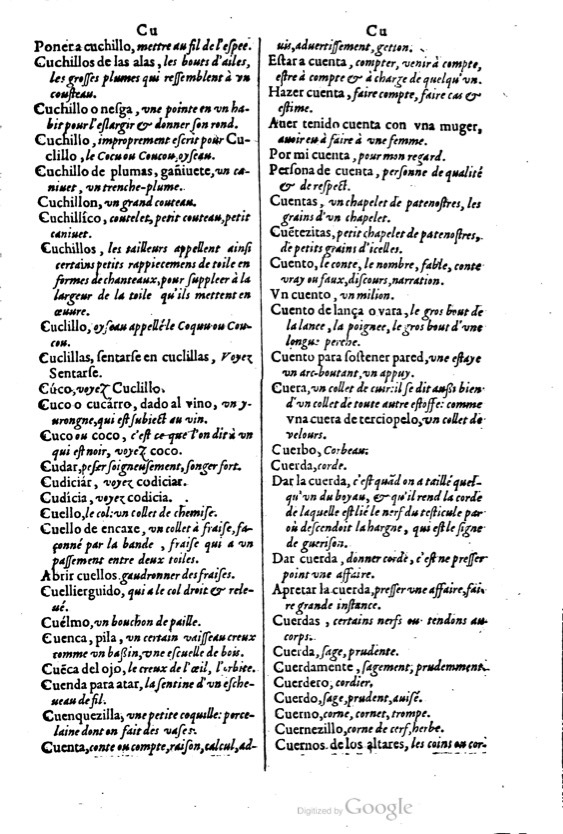 Cu
Poner a cuchillo, mettre au fil de l'espee.
Cuchillos de las alas, les bouts d'ailes,
les grosses plumes qui ressemblent à vn
cousteau.
Cuchillo o nesga, vne pointe en vn ha-
bit pour l'eslargir & donner son rond.
Cuchillo, improprement escrit pour Cu-
clillo, le Cocu ou Coucou, oyseau.
Cuchillo de plumas, gañiuete, vn ca-
niuet, vn trenche-plume.
Cuchillon, vn grand couteau.
Cuchillîco, coutelet, petit couteau, petit
caniuet.
Cuchillos, les tailleurs appellent ainsi
certains petits rappiecemens de toile en
formes de chanteaux, pour suppleer à la
largeur de la toile qu'ils mettent en
œuure.
Cuclillo, oyseau appellé le Coqu ou Cou-
cou.
Cuclillas, sentarse en cuclillas, Voyez
Sentarse.
Cúco, voyez Cuclillo.
Cuco o cucârro, dado al vino, vn y-
urongne, qui est subiect au vin.
Cuco ou coco, c'est ce que l'on dit à vn
qui est noir, voyez coco.
Cudar, peser soigneusement, songer fort.
Cudiciâr, voyez codiciar.
Cudicia, voyez codicia.
Cuello, le col: vn collet de chemise.
Cuello de encaxe, vn collet à fraise, fa-
çonné par la bande, fraise qui a vn
passement entre deux toiles.
Abrir cuellos, gaudronner des fraises.
Cuellierguido, qui a le col droit & rele-
ué.
Cuélmo, vn bouchon de paille.
Cuenca, pila, vn certain vaisseau creux
comme vn baßin, vne escuelle de bois.
Cuẽca del ojo, le creux de l'œil, l'orbite.
Cuenda para atar, la sentine d'vn esche-
ueau de fil.
Cuenquezilla, vne petite coquille: porce-
laine dont on fait des vases.
Cuenta, conte ou compte, raison, calcul, ad-
Cu
uis, aduertissement, getton.
Estar a cuenta, compter, venir à compte,
estre à compte & à charge de quelqu'vn.
Hazer cuenta, faire compte, faire cas &
estime.
Auer tenido cuenta con vna muger,
auoir eu à faire à vne femme.
Por mi cuenta, pour mon regard.
Persona de cuenta, personne de qualité
& de respect.
Cuentas, vn chapelet de patenostres, les
grains d'vn chapelet.
Cuẽtezitas, petit chapelet de patenostres,
de petits grains d'icelles.
Cuento, le conte, le nombre, fable, conte
vray ou faux, discours, narration.
Vn cuento, vn milion.
Cuento de lança o vara, le gros bout de
la lance, la poignee, le gros bout d'vne
longue perche.
Cuento para sostener pared, vne estaye
vn arc-boutant, vn appuy.
Cuera, vn collet de cuir: il se dit außi bien
d'vn collet de toute autre estoffe: comme
vna cuera de terciopelo, vn collet de
velours.
Cuerbo, Corbeau.
Cuerda, corde.
Dar la cuerda, c'est quãd on a taillé quel-
qu'vn du boyau, & qu'il rend la corde
de laquelle est lié le nerf du testicule par
où descendoit la hargne, qui est le signe
de guerison.
Dar cuerda, donner corde, c'est ne presser
point vne affaire.
Apretar la cuerda, presser vne affaire, fai-
re grande instance.
Cuerdas, certains nerfs ou tendons au
corps.
Cuerda, sage, prudente.
Cuerdamente, sagement, prudemment.
Cuerdero, cordier.
Cuerdo, sage, prudent, auisé.
Cuerno, corne, cornet, trompe.
Cuernezillo, corne de cerf, herbe.
Cuernos de los altares, les coins ou cor-
Digitized by Google